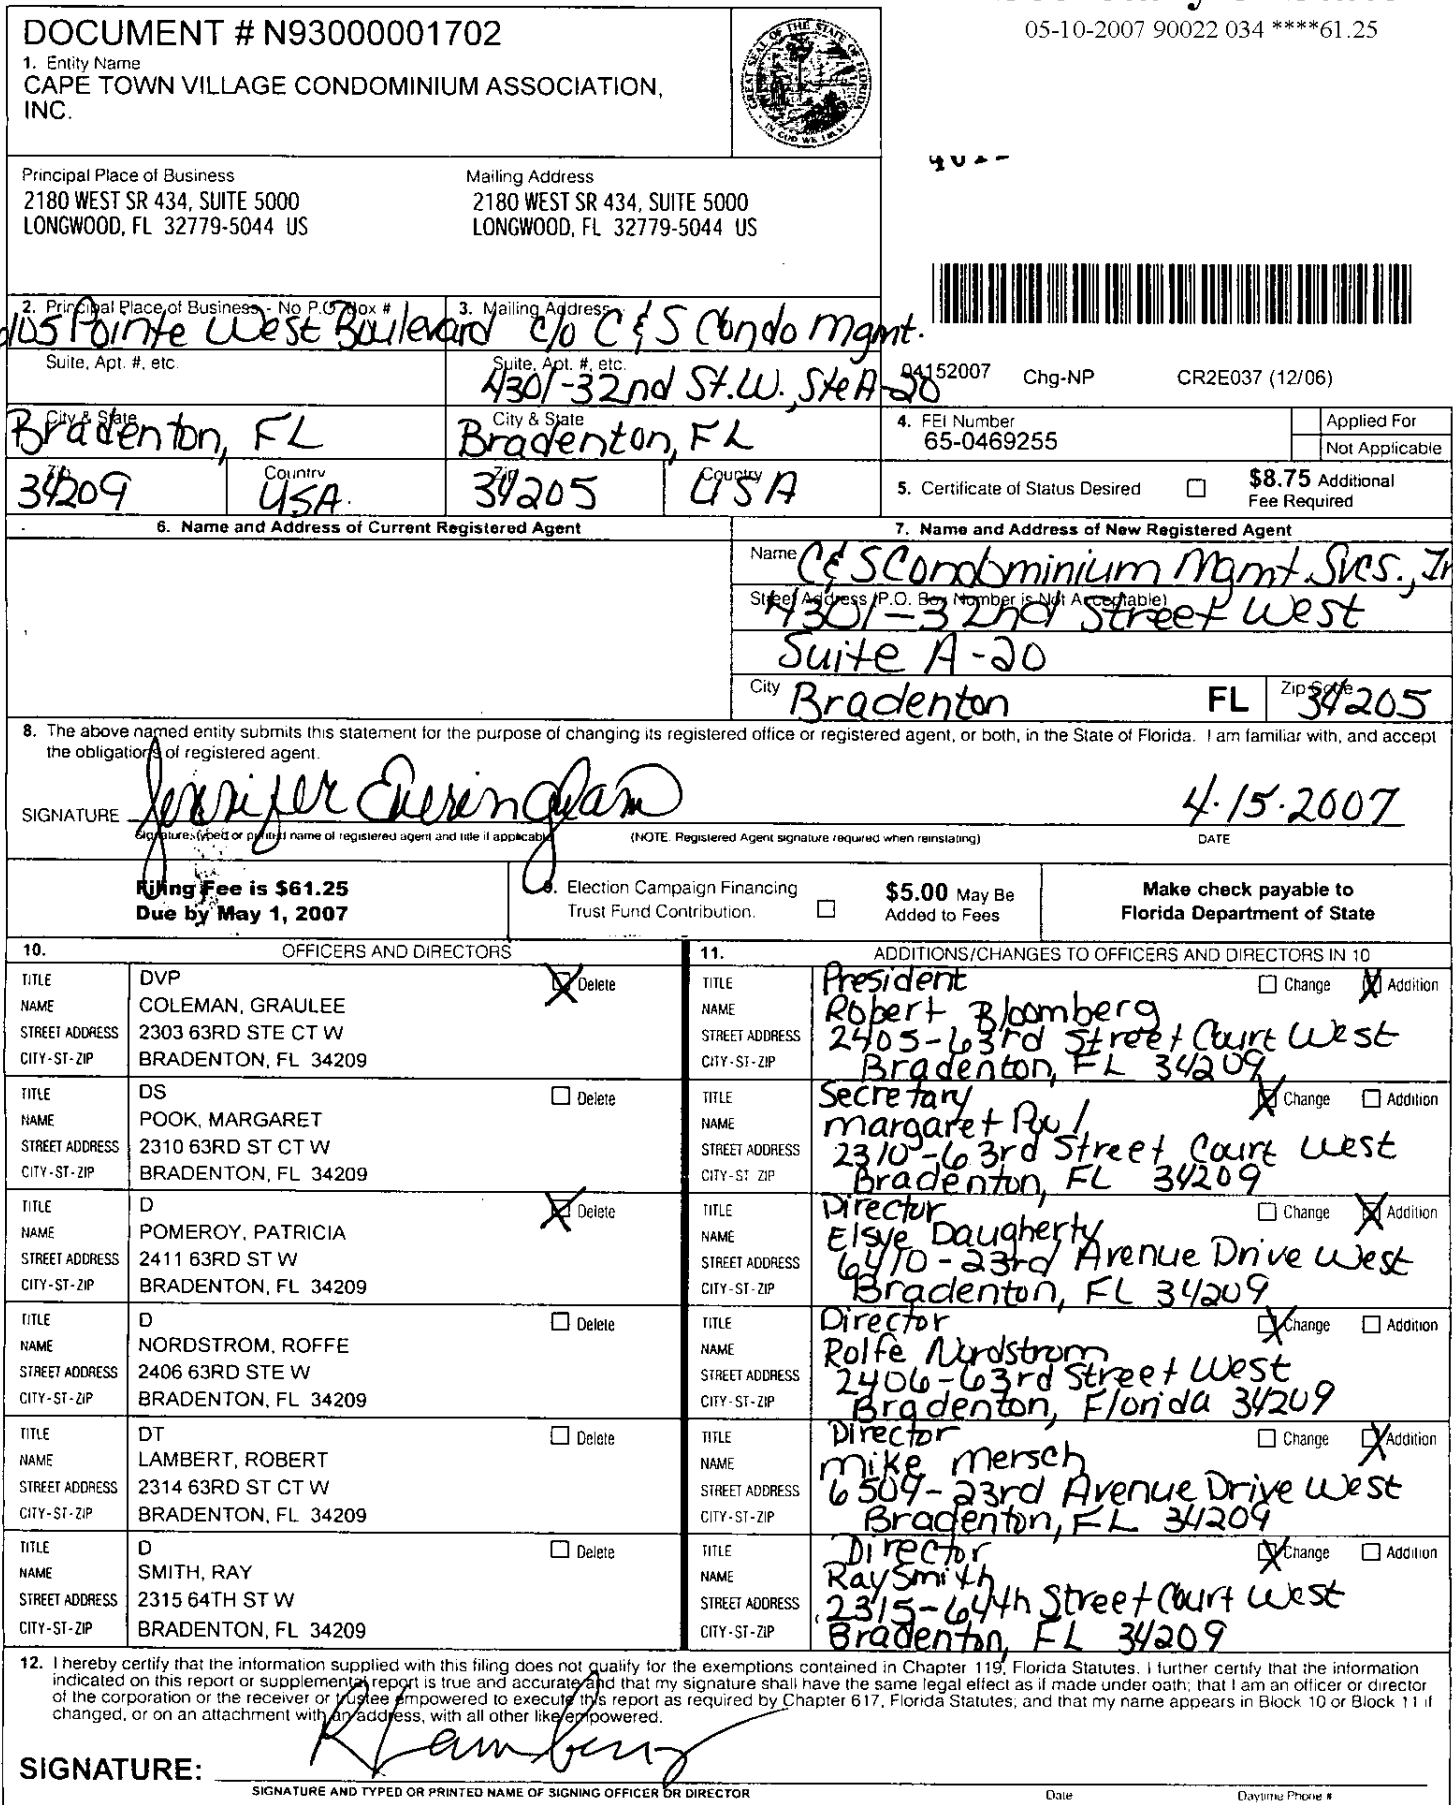 05-10-2007 90022 034 ****61.25
DOCUMENT # N93000001702
1. Entity Name
CAPE TOWN VILLAGE CONDOMINIUM ASSOCIATION,
INC.
GREAT SEAL OF THE STATE OF FLORIDA
IN GOD WE TRUST
Principal Place of Business
2180 WEST SR 434, SUITE 5000
LONGWOOD, FL 32779-5044 US
Mailing Address
2180 WEST SR 434, SUITE 5000
LONGWOOD, FL 32779-5044 US
2. Principal Place of Business - No P.O. Box #
Pointe West Boulevard
Suite, Apt. #, etc.
City & State
Bradenton, FL
Zip
34209
Country
USA
3. Mailing Address
c/o C & S Condo Mgmt.
Suite, Apt. #, etc.
4301-32nd St. W., Ste A-20
City & State
Bradenton, FL
Zip
34205
Country
USA
04152007 Chg-NP CR2E037 (12/06)
4. FEI Number
65-0469255
Applied For
Not Applicable
5. Certificate of Status Desired
$8.75 Additional
Fee Required
6. Name and Address of Current Registered Agent
7. Name and Address of New Registered Agent
Name C & S Condominium Mgmt. Svcs.,
Street Address (P.O. Box Number is Not Acceptable)
4301-32nd Street West
Suite A-20
City Bradenton FL Zip Code 34205
8. The above named entity submits this statement for the purpose of changing its registered office or registered agent, or both, in the State of Florida. I am familiar with, and accept
the obligations of registered agent.
SIGNATURE Jennifer 4.15.2007
Signature, typed or printed name of registered agent and title if applicable (NOTE. Registered Agent signature required when reinstating) DATE
Filing Fee is $61.25
Due by May 1, 2007
9. Election Campaign Financing
Trust Fund Contribution.
$5.00 May Be
Added to Fees
Make check payable to
Florida Department of State
10. OFFICERS AND DIRECTORS
TITLE DVP Delete
NAME COLEMAN, GRAULEE
STREET ADDRESS 2303 63RD STE CT W
CITY-ST-ZIP BRADENTON, FL 34209
TITLE DS Delete
NAME POOK, MARGARET
STREET ADDRESS 2310 63RD ST CT W
CITY-ST-ZIP BRADENTON, FL 34209
TITLE D Delete
NAME POMEROY, PATRICIA
STREET ADDRESS 2411 63RD ST W
CITY-ST-ZIP BRADENTON, FL 34209
TITLE D Delete
NAME NORDSTROM, ROFFE
STREET ADDRESS 2406 63RD STE W
CITY-ST-ZIP BRADENTON, FL 34209
TITLE DT Delete
NAME LAMBERT, ROBERT
STREET ADDRESS 2314 63RD ST CT W
CITY-ST-ZIP BRADENTON, FL 34209
TITLE D Delete
NAME SMITH, RAY
STREET ADDRESS 2315 64TH ST W
CITY-ST-ZIP BRADENTON, FL 34209
11. ADDITIONS/CHANGES TO OFFICERS AND DIRECTORS IN 10
TITLE President Change Addition
NAME Robert Bloomberg
STREET ADDRESS 2405-63rd Street Court West
CITY-ST-ZIP Bradenton, FL 34209
TITLE Secretary Change Addition
NAME Margaret
STREET ADDRESS 2310-63rd Street Court West
CITY-ST-ZIP Bradenton, FL 34209
TITLE Director Change Addition
NAME Elsye Daugherty
STREET ADDRESS 6410-23rd Avenue Drive West
CITY-ST-ZIP Bradenton, FL 34209
TITLE Director Change Addition
NAME Rolfe Nordstrom
STREET ADDRESS 2406-63rd Street West
CITY-ST-ZIP Bradenton, Florida 34209
TITLE Director Change Addition
NAME Mike Mersch
STREET ADDRESS 6509-23rd Avenue Drive West
CITY-ST-ZIP Bradenton, FL 34209
TITLE Director Change Addition
NAME Ray Smith
STREET ADDRESS 2315-64th Street Court West
CITY-ST-ZIP Bradenton, FL 34209
12. I hereby certify that the information supplied with this filing does not qualify for the exemptions contained in Chapter 119, Florida Statutes. I further certify that the information
indicated on this report or supplemental report is true and accurate and that my signature shall have the same legal effect as if made under oath; that I am an officer or director
of the corporation or the receiver or trustee empowered to execute this report as required by Chapter 617, Florida Statutes; and that my name appears in Block 10 or Block 11 if
changed, or on an attachment with an address, with all other like empowered.
SIGNATURE:
SIGNATURE AND TYPED OR PRINTED NAME OF SIGNING OFFICER OR DIRECTOR Date Daytime Phone #